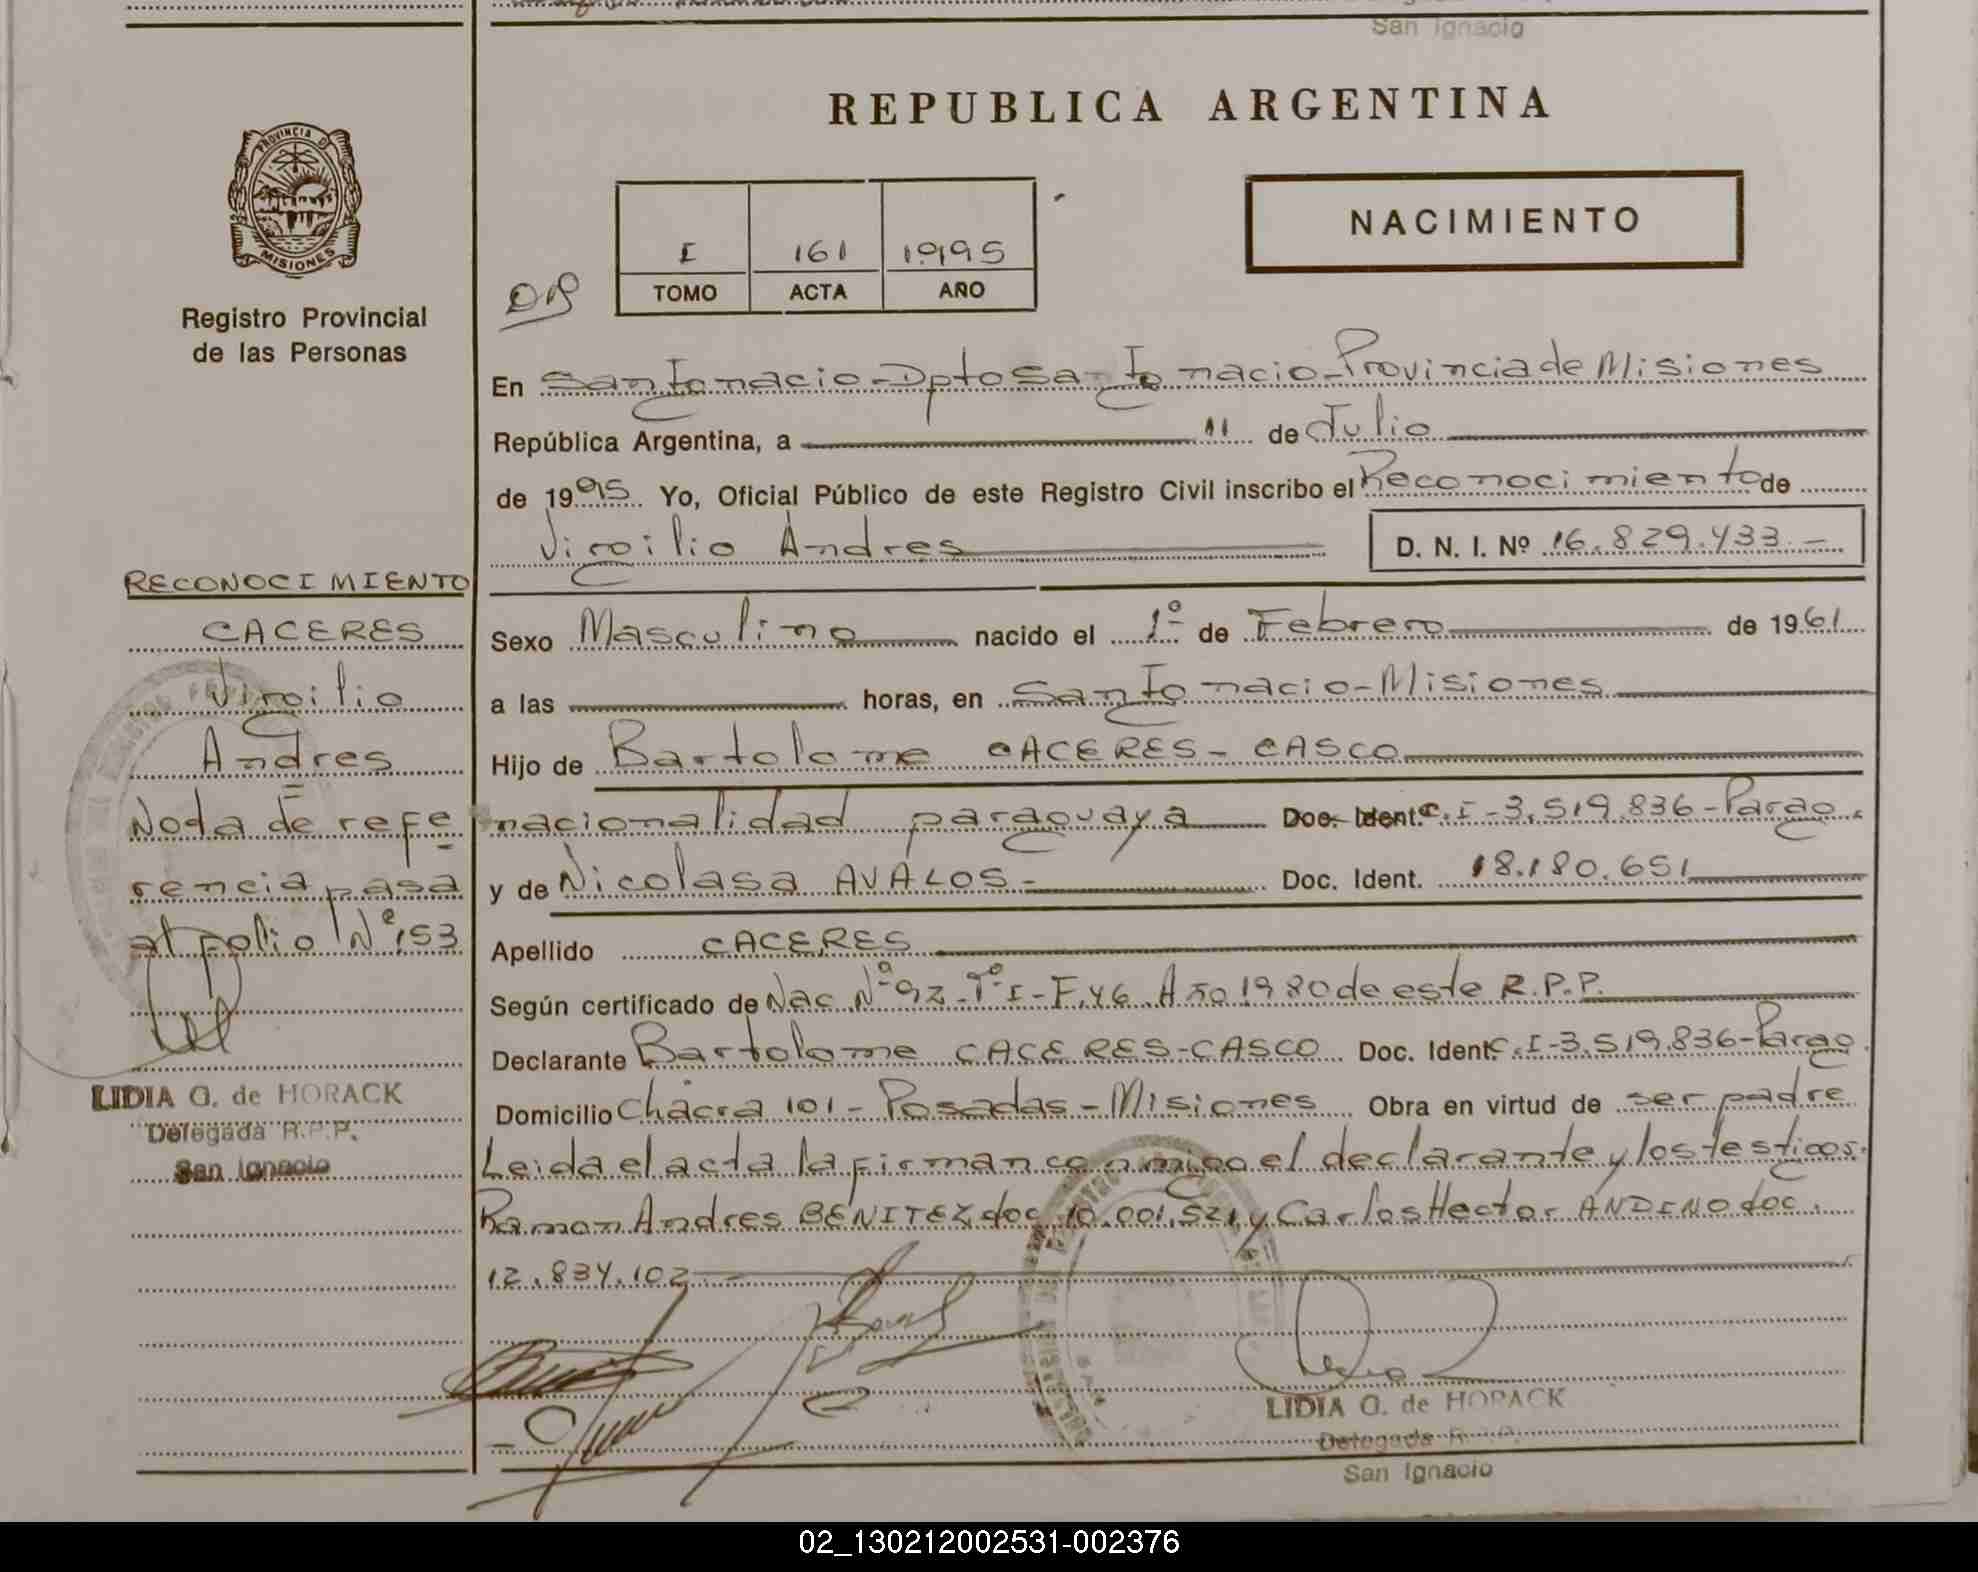 San Ignacio
REPUBLICA ARGENTINA
PROVINCIA DE
MISIONES
NACIMIENTO
I 161 1995
TOMO ACTA AÑO
Registro Provincial
de las Personas
En San Ignacio - Dpto San Ignacio - Provincia de Misiones
República Argentina, a 11 de Julio
de 1995 Yo, Oficial Público de este Registro Civil inscribo el Reconocimiento de
Virgilio Andres D. N. I. Nº 16.829.433.-
RECONOCIMIENTO
CACERES
Virgilio
Andres
Nota de refe
rencia pasa
al folio Nº 153
Sexo Masculino nacido el 1º de Febrero de 1961
a las horas, en San Ignacio - Misiones
Hijo de Bartolome CACERES - CASCO
nacionalidad paraguaya Doc. Ident. C.I - 3.519.836 - Parag.
y de Nicolasa AVALOS - Doc. Ident. 18.180.651
Apellido CACERES
Según certificado de Nac. Nº 92 - Tº I - F. 46 Año 1980 de este R.P.P.
Declarante Bartolome CACERES - CASCO Doc. Ident. C.I - 3.519.836 - Parag.
Domicilio Chacra 101 - Posadas - Misiones Obra en virtud de ser padre
Leida el acta la firman conmigo el declarante y los testigos.
Ramon Andres BENITEZ doc 10.001.521 y Carlos Hector ANDINO doc.
12.834.102 -
LIDIA O. de HORACK
Delegada R.P.P.
San Ignacio
LIDIA O. de HORACK
Delegada R.P.P.
San Ignacio
02_130212002531-002376